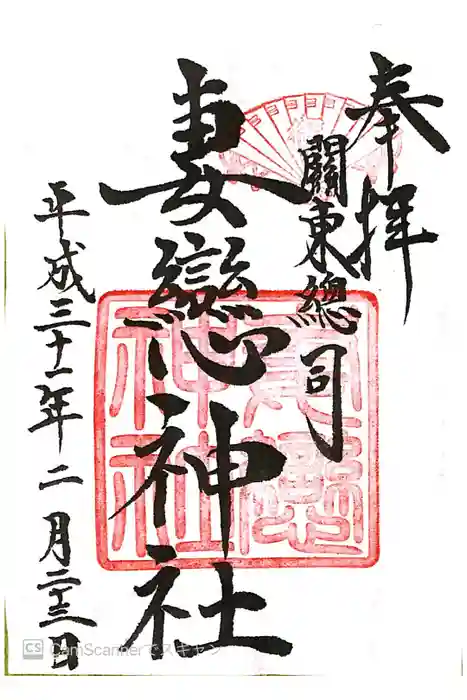 奉拝
關東總司
妻戀神社
平成三十一年二月二十三日
妻戀神社
CS CamScannerでスキャン